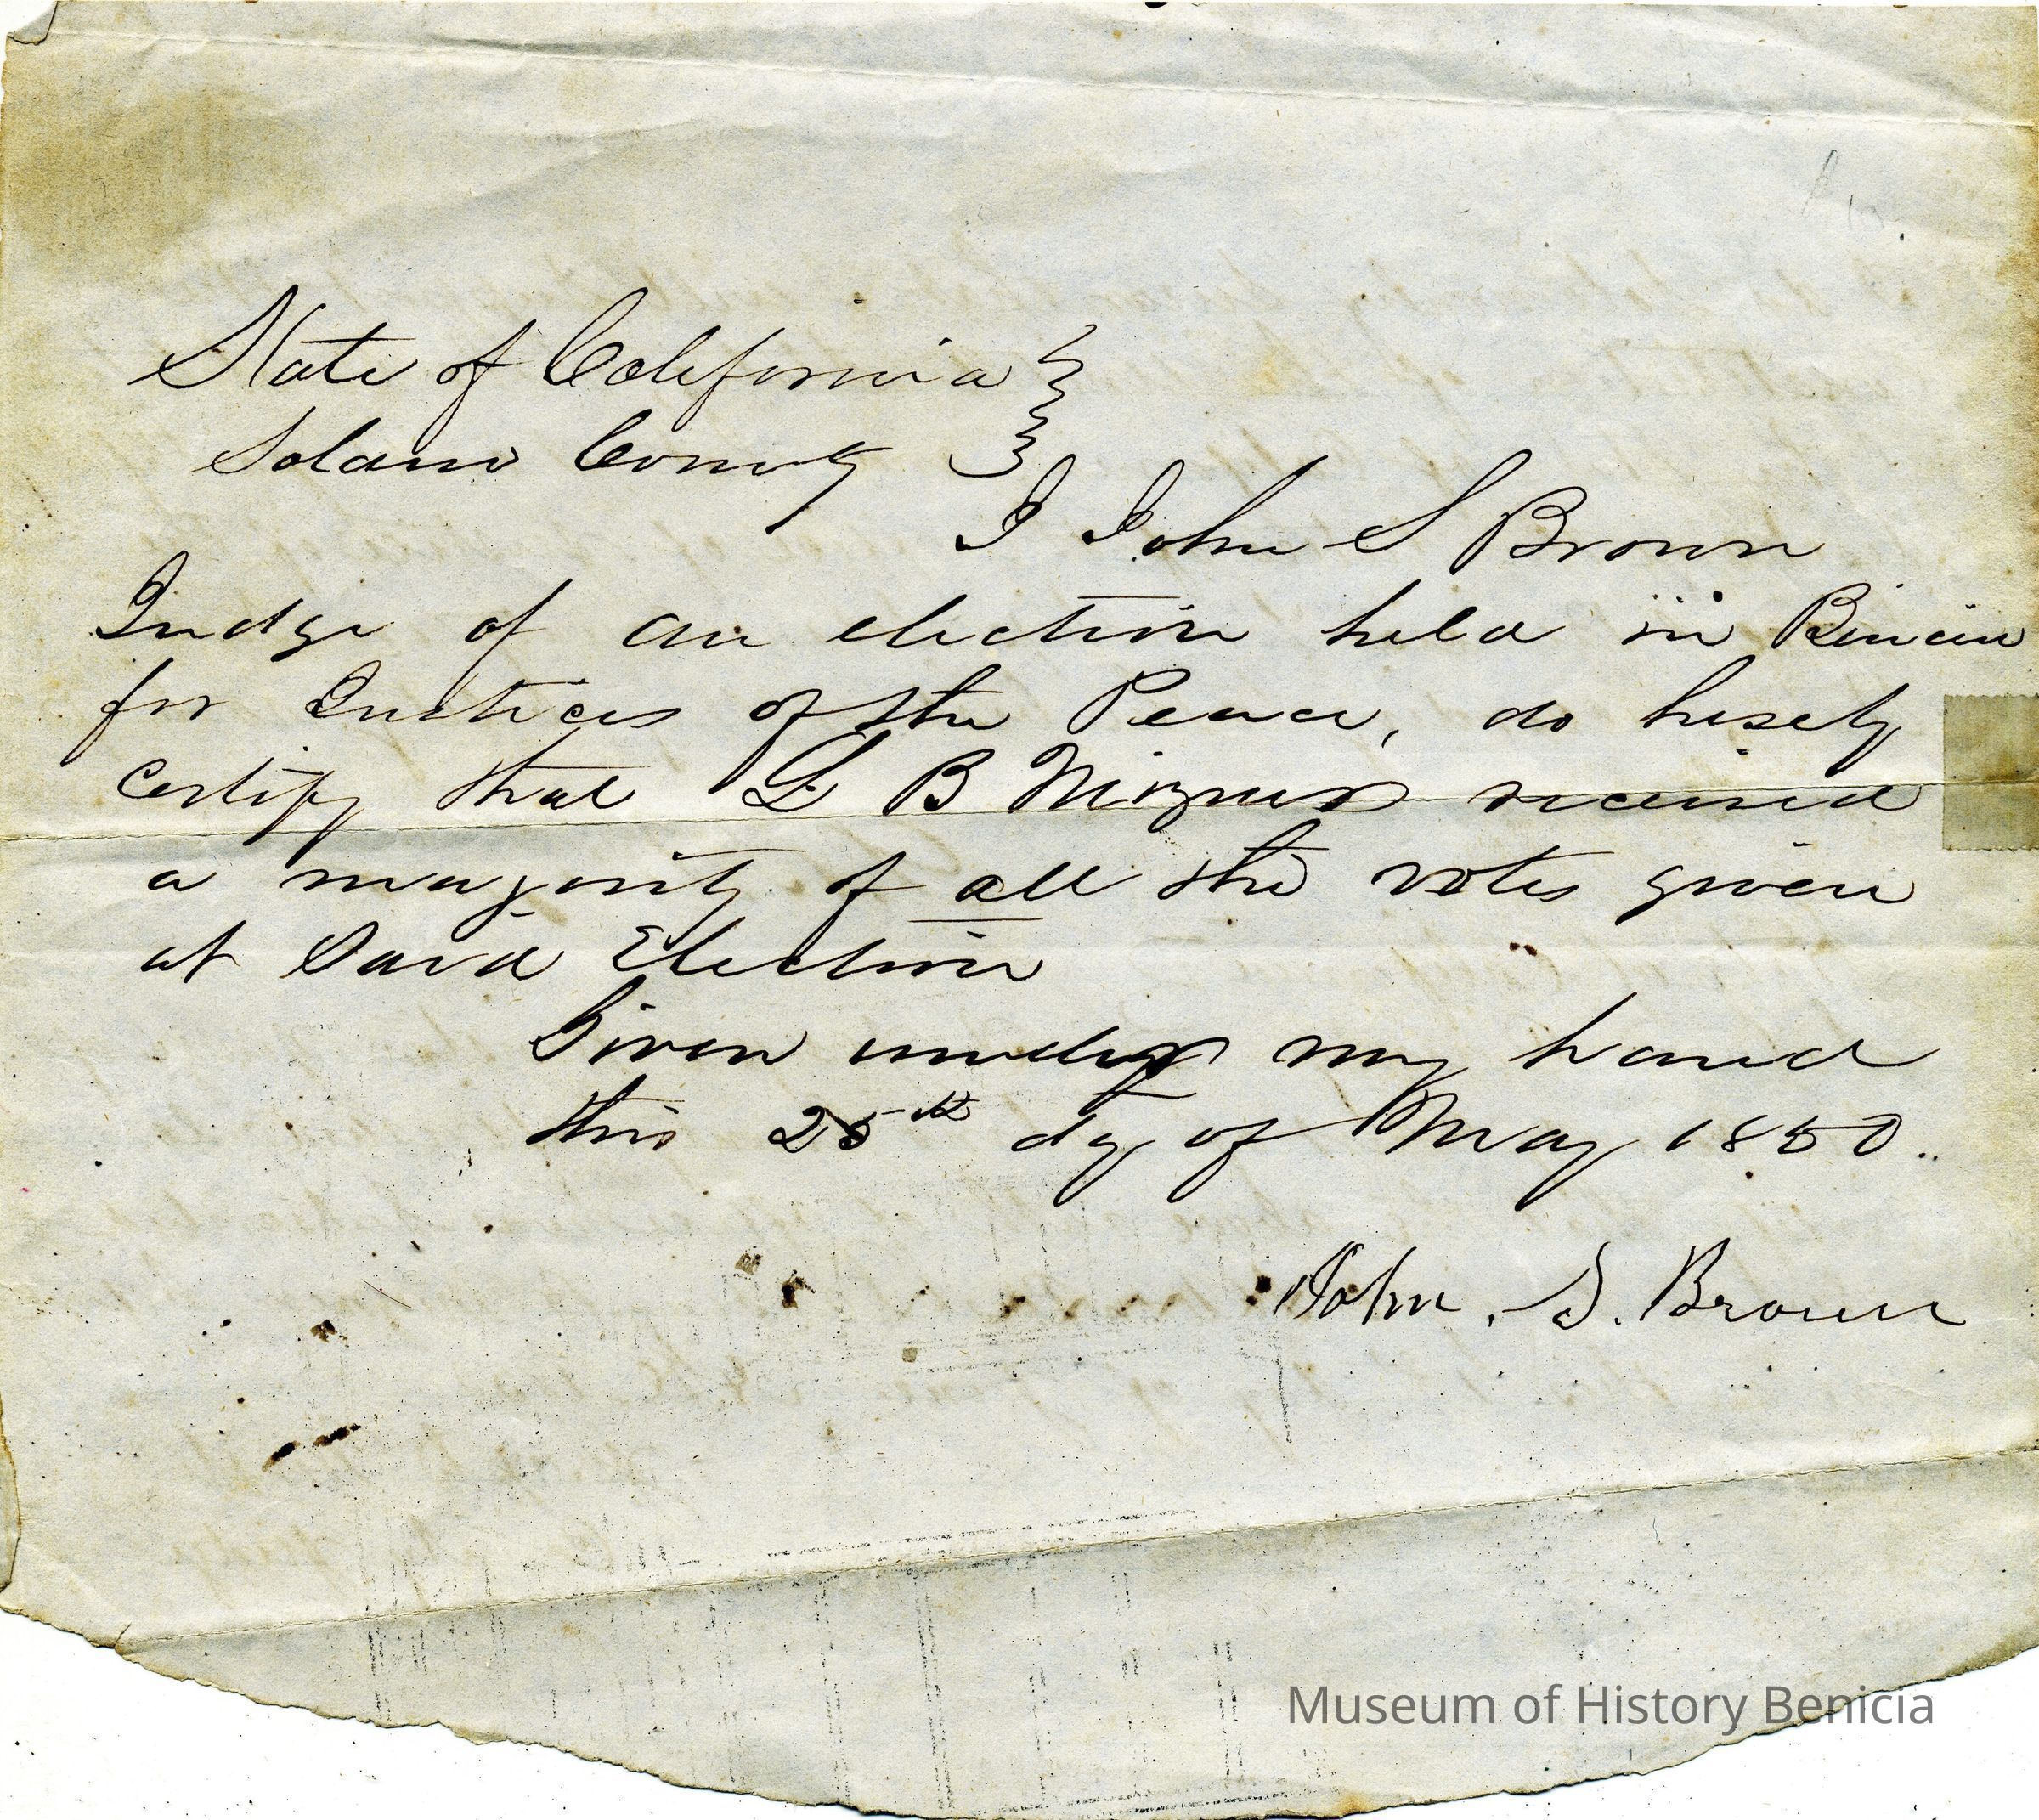 State of California
Solano County
I John S Brown
Judge of an election held in Benicia
for Justices of the Peace, do hereby
certify that L B Mizner received
a majority of all the votes given
at Said Election
Given under my hand
this 25th dy of May 1850..
John. S. Brown
Museum of History Benicia